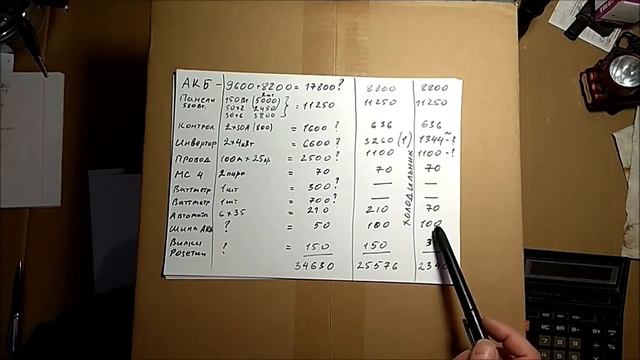 АКБ - 9600+8200 = 17800? 8800 8800
Панели 150Вт (5000) = 11250 11250 11250
50×2 2450
30×6 3800
Контрол 2×30А (800) = 1600? 636 636
Инвертор 2×4кВт = 6600? 3260 (1) 1344
Провод 100м × 25гр. = 2500? 1100 1100 - ?
МС 4 2пары = 70 70 70
Ваттметр 1шт = 300? — —
Ваттметр 1шт = 700? — —
Автомат 6×35 = 210 210 70
Шина АКБ ? = 50 100 100
Вилки Розетки ? = 150 150
34630 25576
ХОЛОДИЛЬНИК